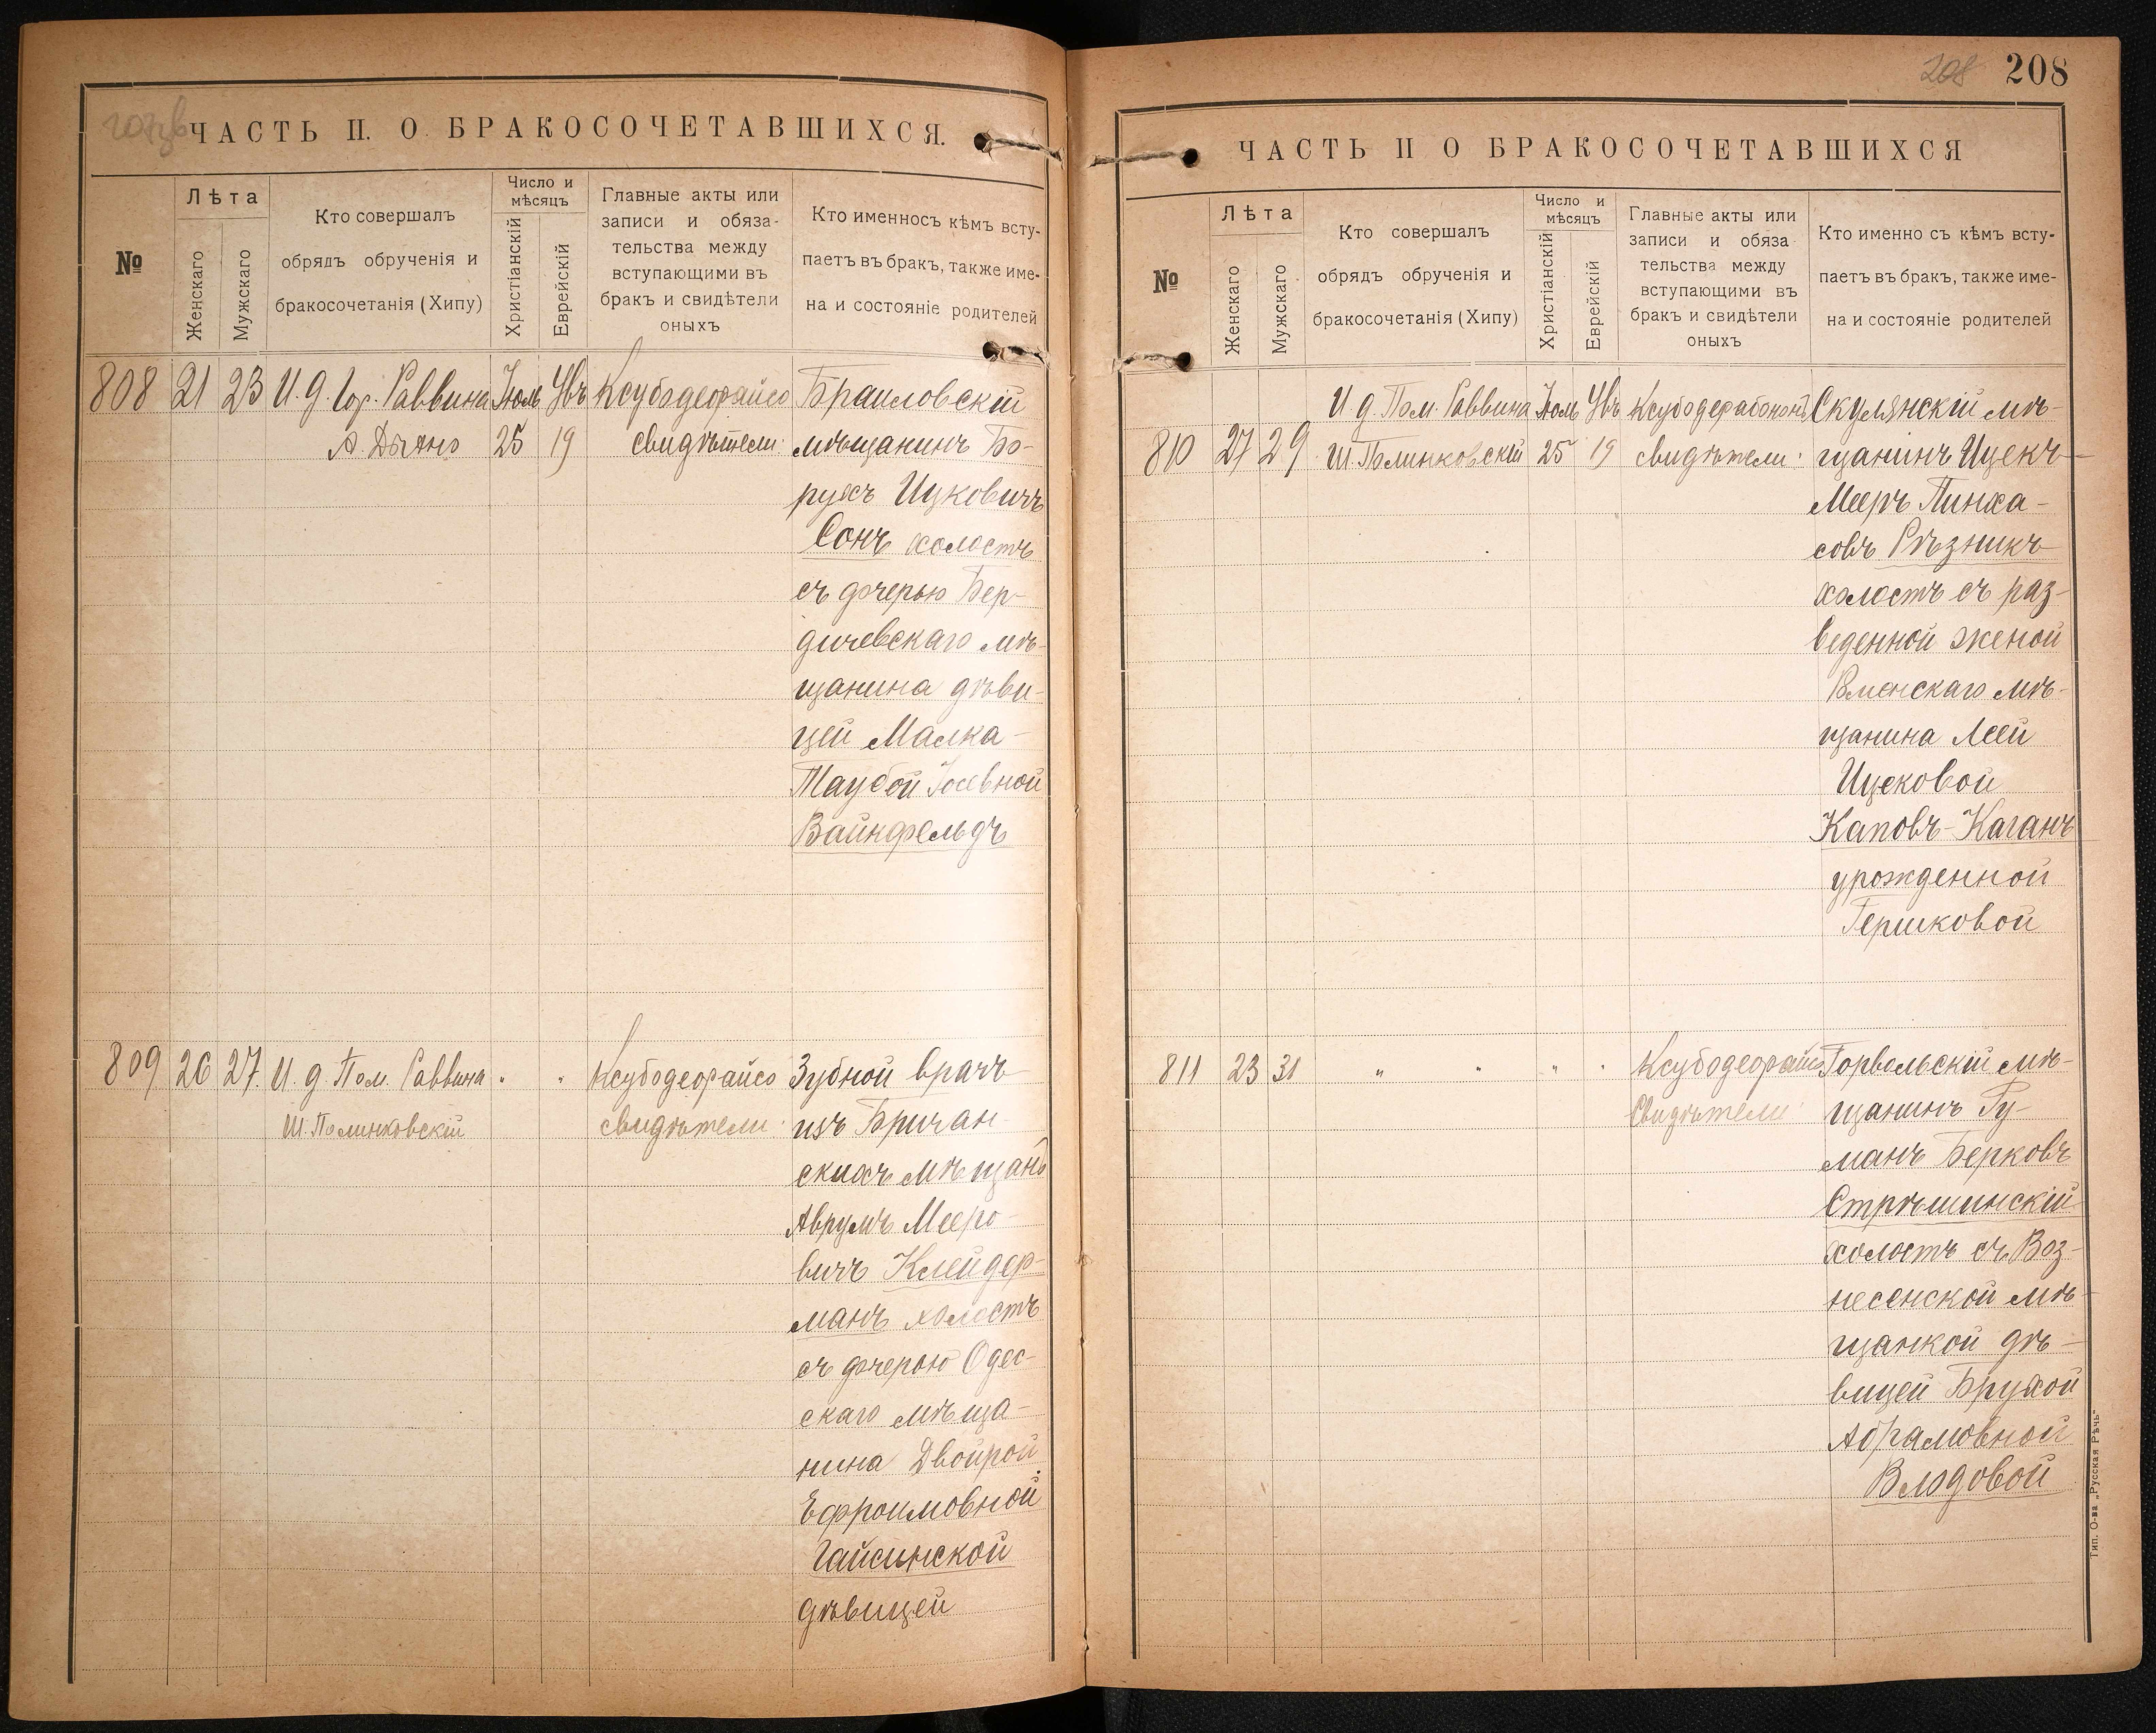 ЧАСТЬ II. О БРАКОСОЧЕТАВШИХСЯ.
№
Лѣта
Женскаго
Мужскаго
Кто совершалъ
обрядъ обрученія и
бракосочетанія (Хипу)
Число и
мѣсяцъ
Христіанскій
Еврейскій
Главные акты или
записи и обяза-
тельства между
вступающими въ
бракъ и свидѣтели
оныхъ
Кто именносъ кѣмъ всту-
паетъ въ бракъ, также име-
на и состояніе родителей
808 21 23 И. д. Гор. Раввина Іюль Увъ Ксубодеорайсо
25 19 свидѣтели
Браиловскій
мѣщанинъ Бо-
рухъ Ицковичъ
Сонъ холостъ
съ дочерью Бер-
дичевскаго мѣ-
щанина дѣви-
цей Малка-
Таубой Іосевной
Вайнфельдъ
809 26 27. И. д. Пом. Раввина " " Ксубодеорайсо
Ш. Полинковскій свидѣтели
Зубной врачъ
изъ Бричан-
скихъ мѣщанъ
Аврумъ Мееро-
вичъ Клейдер-
манъ холостъ
съ дочерью Одес-
скаго мѣща-
нина Двойрой
Ефроимовной
Гайсинской
дѣвицей
208 208
ЧАСТЬ II О БРАКОСОЧЕТАВШИХСЯ
№
Лѣта
Женскаго
Мужскаго
Кто совершалъ
обрядъ обрученія и
бракосочетанія (Хипу)
Число и
мѣсяцъ
Христіанскій
Еврейскій
Главные акты или
записи и обяза
тельства между
вступающими въ
бракъ и свидѣтели
оныхъ
Кто именно съ кѣмъ всту-
паетъ въ бракъ, также име-
на и состояніе родителей
И. д. Пом. Раввина Іюль Увъ
810 27 29 Ш. Полинковскій 25 19 свидѣтели
Скулянскій мѣ-
щанинъ Ицекъ-
Мееръ Пинха-
совъ Рѣзникъ
холостъ съ раз-
веденной женой
мѣ-
щанина Леей
Ицековой
Каповъ-Каганъ
урожденной
Гершковой
811 23 31 " " " " Ксубодеорайсо
Свидѣтели
Горвольскій мѣ-
щанинъ Гу-
манъ Берковъ
Стрѣшинскій
холостъ съ Воз-
несенской мѣ-
щанкой дѣ-
вицей Брухой
Абрамовной
Влодовой
Тип. О-ва „Русская Рѣчь"